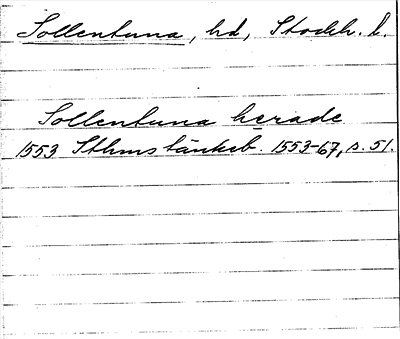 Sollentuna, hd, Stockh. l.
Sollentuna herade
1553 Sthms tänkeb. 1553-67, s. 51.